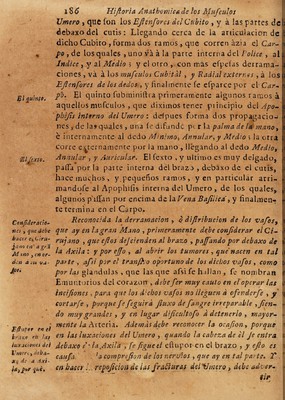 186 Historia Anathomica de los Musculos
Umero, que son los Estensores del Cubito, y à las partes de
debaxo del cutis: Llegando cerca de la articulacion de
dicho Cubito, forma dos ramos, que corren àzia el Car-
po, de los quales, uno và à la parte interna del Police, al
Indice, y al Medio: y el otro, con mas espelas derrama-
ciones, và à los musculos Cubital, y Radial externos, à los
Estensores de los dedos, y finalmente se esparce por el Car-
El quinto.
pò. El quinto subministra primeramente algunos ramos à
aquellos musculos, que diximos tener principio del Apo-
phisis Interno del Umero: despues forma dos propagacio-
nes, de las quales, una se difunde por la palma de la mano,
è internamente al dedo Minimo, Annular, y Medio: la otra
corre externamente por la mano, llegando al dedo Medio,
El sexto.
Annular, y Auricular. El sexto, y ultimo es muy delgado,
passa por la parte interna del brazo, debaxo de el cutis,
hace muchos, y pequeños ramos, y en particular arri-
mandose al Apophisis interna del Umero, de los quales,
algunos passan por encima de la Vena Basilica, y finalmen-
te termina en el Carpo.
Reconocida la derramacion, è distribucion de los vasos,
que ay en la gran Mano, primeramente debe considerar el Ci-
rujano, que estos descienden al brazo, passando por debaxo de
la Axila: y por esso, al abrir los tumores, que nacen en tal
parte, assi por el transito oportuno de los dichos vasos, como
por las glandulas, que las que assi se hallan, se nombran
Emuctorios del corazon, debe ser muy cauto en el operar las
incisiones, para que los dichos vasos no lleguen à ofenderse, y
cortarse, porque se seguirà fluxo de sangre irreparable, sien-
do muy grandes, y en lugar dificultoso à detenerlo, mayor-
mente la Arteria. Ademàs debe reconocer la ocasion, porque
en las luxaciones del Umero, quando la cabeza de èl se entra
debaxo de la Axila, se sigue el estupor en el brazo, y esto es
causa la compresion de los nervios, que ay en tal parte. Y
en hacer la reposicion de las fracturas del Umero, debe adver-
tir